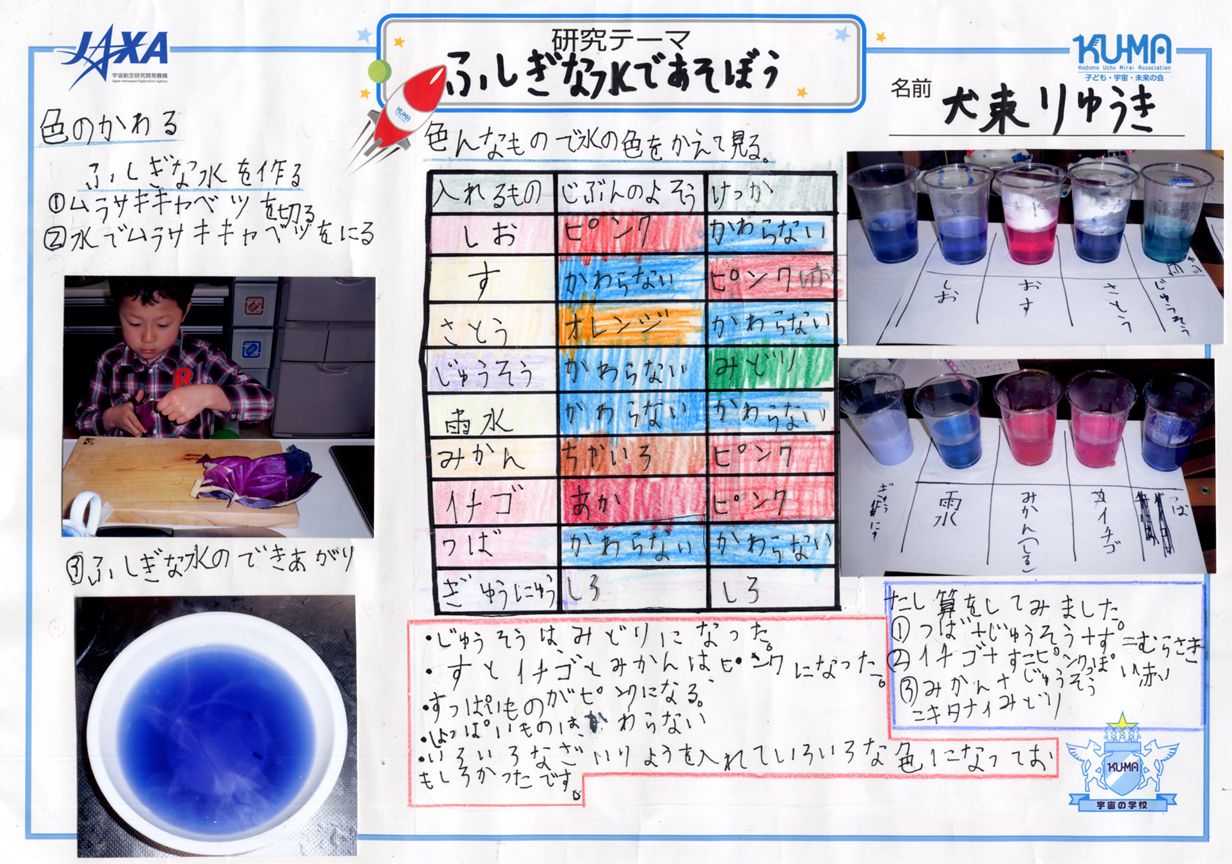 JAXA
宇宙航空研究開発機構
Japan Aerospace Exploration Agency
研究テーマ
ふしぎな水であそぼう
KUMA
KU-MA
Kodomo Uchu Mirai Association
子ども・宇宙・未来の会
名前 犬束りゅうき
色のかわる
ふしぎな水を作る
①ムラサキキャベツを切る
②水でムラサキキャベツをにる
③ふしぎな水のできあがり
色んなもので水の色をかえて見る。
入れるもの じぶんのよそう けっか
しお ピンク かわらない
す かわらない ピンク(赤)
さとう オレンジ かわらない
じゅうそう かわらない みどり
雨水 かわらない かわらない
みかん ちがいろ ピンク
イチゴ あか ピンク
つば かわらない かわらない
ぎゅうにゅう しろ しろ
しお
おす
さとう
じゅうそう
ぎゅうにゅう
雨水
みかん(しる)
イチゴ
つば
・じゅうそうはみどりになった。
・すとイチゴとみかんはピンクになった。
・すっぱいものがピンクになる。
・しょっぱいものは、かわらない
・いろいろなざいりょうを入れていろいろな色になってお
もしろかったです。
たし算をしてみました。
①つば+じゅうそう+す=むらさき
②イチゴ+す=ピンクっぽい赤
③みかん+じゅうそう
=キタナイみどり
KU-MA
宇宙の学校